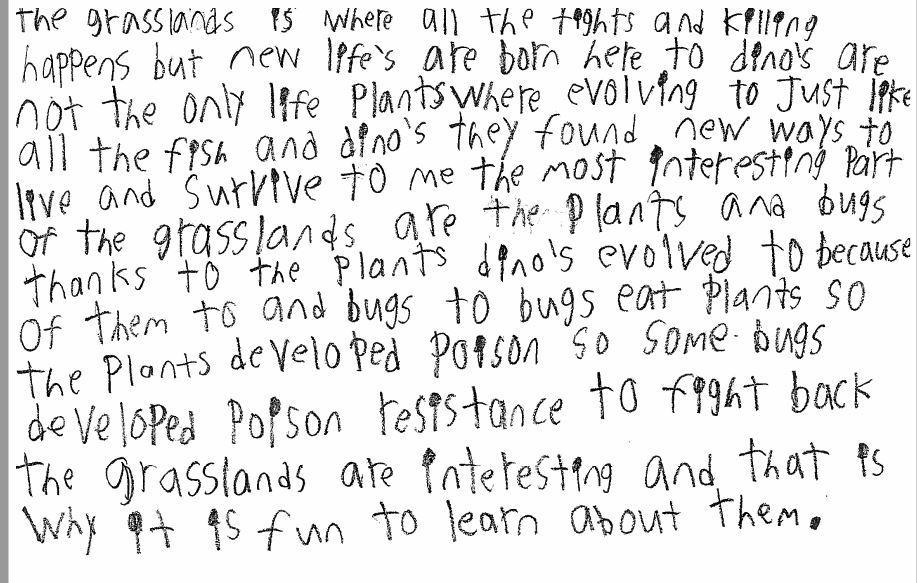 the grasslands is where all the fights and killing
happens but new life's are born here to dino's are
not the only life Plants where evolving to Just like
all the fish and dino's they found new ways to
live and Survive to me the most interesting Part
of the grasslands are the Plants and bugs
thanks to the Plants dino's evolved to because
of them to and bugs to bugs eat Plants so
the Plants developed poison so some bugs
developed Poison resistance to fight back
the grasslands are interesting and that is
Why it is fun to learn about them.